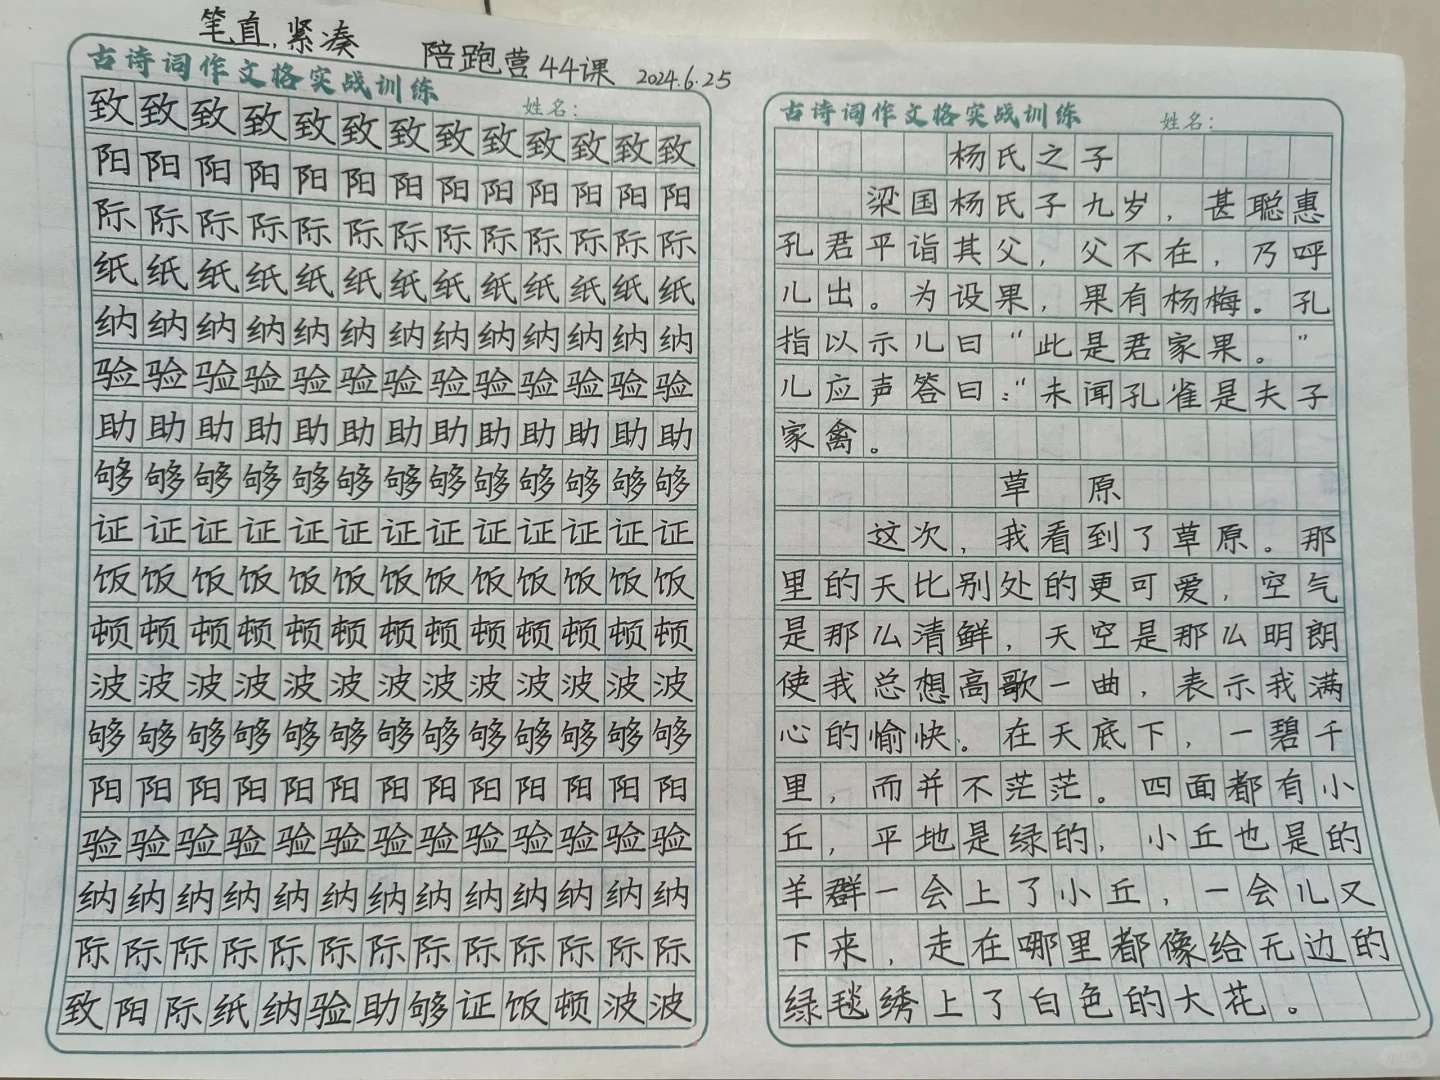 笔直,紧凑
陪跑营44课 2024.6.25
古诗词作文格实战训练
姓名:
致致致致致致致致致致致致致
阳阳阳阳阳阳阳阳阳阳阳阳阳
际际际际际际际际际际际际际
纸纸纸纸纸纸纸纸纸纸纸纸纸
纳纳纳纳纳纳纳纳纳纳纳纳纳
验验验验验验验验验验验验验
助助助助助助助助助助助助助
够够够够够够够够够够够够够
证证证证证证证证证证证证证
饭饭饭饭饭饭饭饭饭饭饭饭饭
顿顿顿顿顿顿顿顿顿顿顿顿顿
波波波波波波波波波波波波波
够够够够够够够够够够够够够
阳阳阳阳阳阳阳阳阳阳阳阳阳
验验验验验验验验验验验验验
纳纳纳纳纳纳纳纳纳纳纳纳纳
际际际际际际际际际际际际际
致阳际纸纳验助够证饭顿波波
古诗词作文格实战训练
姓名:
杨氏之子
梁国杨氏子九岁，甚聪惠
孔君平诣其父，父不在，乃呼
儿出。为设果，果有杨梅。孔
指以示儿曰“此是君家果。”
儿应声答曰：“未闻孔雀是夫子
家禽。
草 原
这次，我看到了草原。那
里的天比别处的更可爱，空气
是那么清鲜，天空是那么明朗
使我总想高歌一曲，表示我满
心的愉快。在天底下，一碧千
里，而并不茫茫。四面都有小
丘，平地是绿的，小丘也是的
羊群一会上了小丘，一会儿又
下来，走在哪里都像给无边的
绿毯绣上了白色的大花。